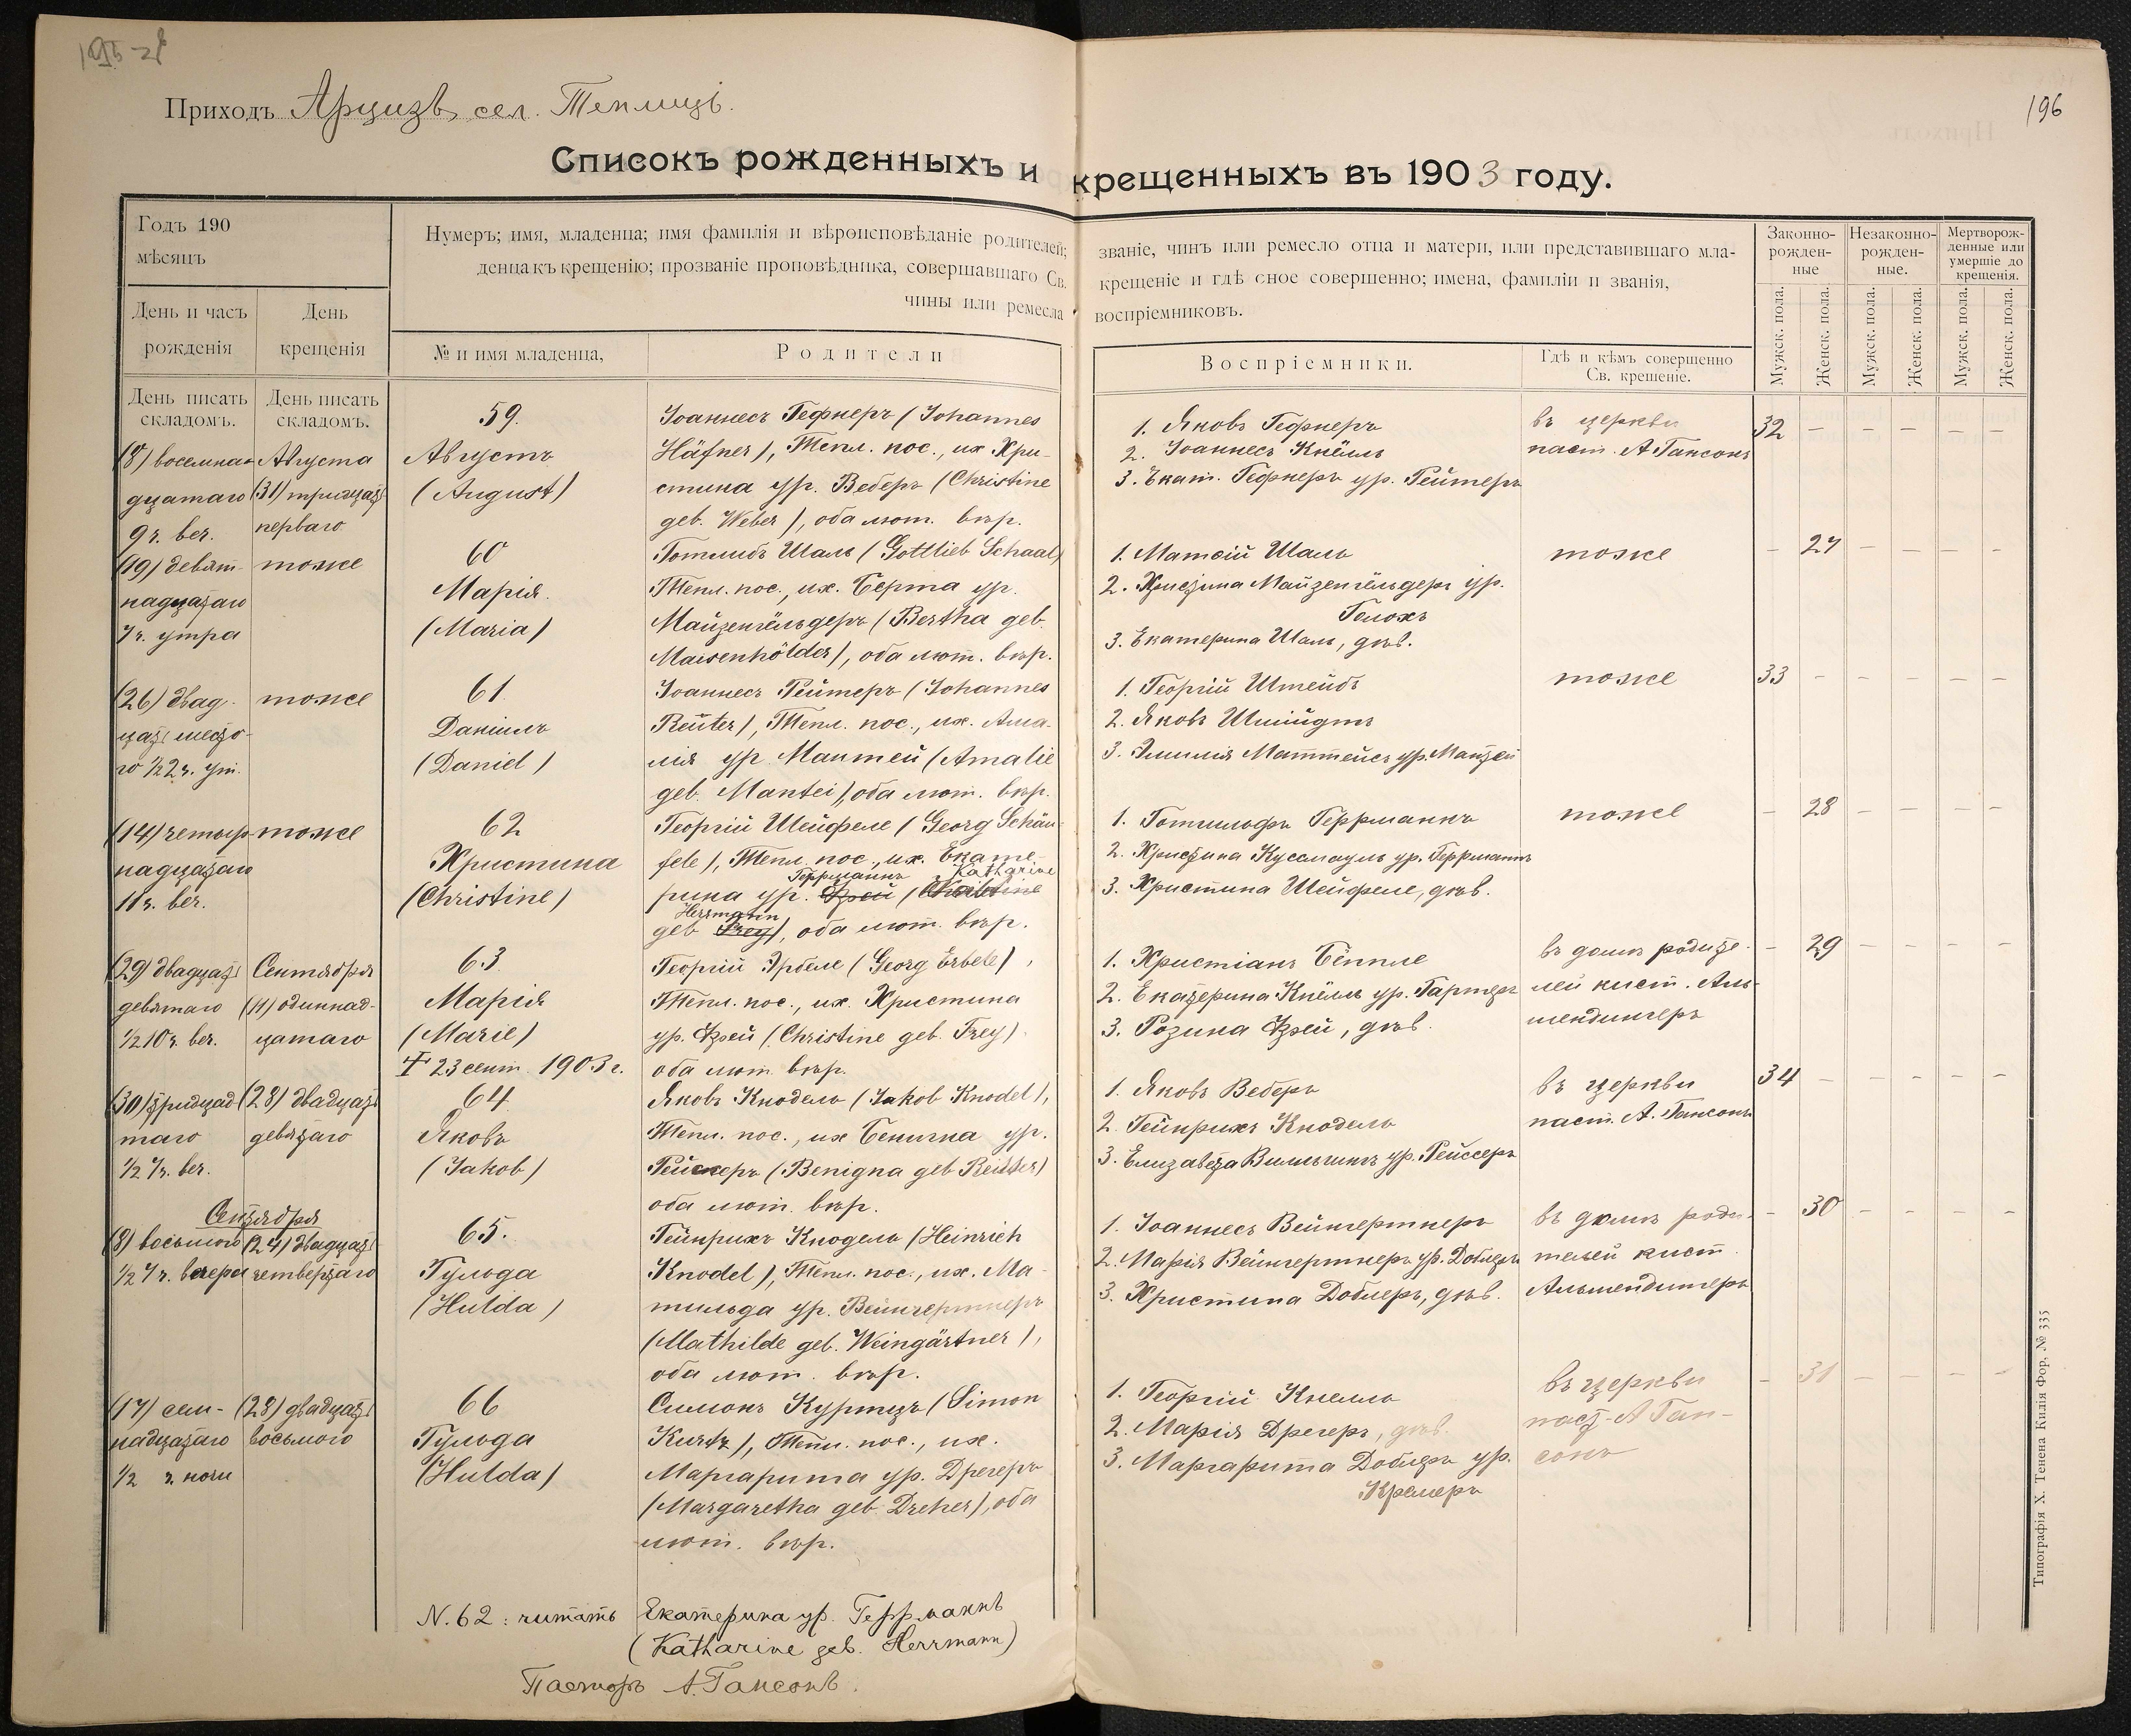 195-
Приходъ Арцизъ, сел. Теплицъ.
196
Списокъ рожденныхъ и крещенныхъ въ 1903 году.
Годъ 190
мѣсяцъ
День и часъ
рожденія
День
крещенія
Нумеръ; имя, младенца; имя фамилія и вѣроисповѣданіе родителей; званіе, чинъ или ремесло отца и матери, или представившаго мла-
денца къ крещенію; прозваніе проповѣдника, совершавшаго Св. крещеніе и гдѣ оное совершенно; имена, фамиліи и званія,
чины или ремесла воспріемниковъ.
№ и имя младенца,
Родители
Воспріемники.
Гдѣ и кѣмъ совершенно
Св. крещеніе.
Законно-
рожден-
ные
Незаконно-
рожден-
ные.
Мертворож-
денные или
умершіе до
крещенія.
Мужск. пола.
Женск. пола.
Мужск. пола.
Женск. пола.
Мужск. пола.
Женск. пола.
День писать
складомъ.
День писать
складомъ.
(8) восемна-
дцатаго
9 ч. веч.
Августа
(31) тридцать
перваго
59.
Августъ
(August)
Іоаннесъ Гефнеръ (Johannes
Häfner), Тепл. пос., их Хри-
стина ур. Веберъ (Christine
geb. Weber), оба лют. вѣр.
1. Яковъ Гефнеръ
2. Іоаннесъ Кнёлль
3. Екат. Гефнеръ ур. Рейтеръ
въ церкви
паст. А Гансонъ
32 – – – – –
(19) девят-
надцатаго
7 ч. утра
тоже
60
Марія.
(Maria)
Готлибъ Шаль (Gottlieb Schaal)
Тепл. пос., их. Берта ур.
Майзенгёльдеръ (Bertha geb.
Maisenhölder), оба лют. вѣр.
1. Матѳій Шаль
2. Христина Майзенгёльдеръ ур.
3. Екатерина Шаль, дѣв.
тоже
– 27 – – – –
(26) двад-
цать шесто-
го ½2 ч. ут.
тоже
61
Даніилъ
(Daniel)
Іоаннесъ Рейтеръ (Johannes
Reuter), Тепл. пос., их. Ама-
лія ур. Мантей (Amalie
geb. Mantei), оба лют. вѣр.
1. Георгій Штейбъ
2. Яковъ Шмидтъ
3. Эмилія Маттейсъ ур. Мантей
тоже
33 – – – – –
(14) четыр-
надцатаго
11 ч. веч.
тоже
62
Христина
(Christine)
Георгій Шейфеле (Georg Schäu-
fele), Тепл. пос., их. Екате-
Геррманнъ Katharine
рина ур. Фрей (Christine
Herrmann
geb. Frey), оба лют. вѣр.
1. Готтильфъ Геррманнъ
2. Христина Куссмауль ур. Геррманнъ
3. Христина Шейфеле, дѣв.
тоже
– 28 – – – –
(29) двадцать
девятаго
½10 ч. веч.
Сентября
(11) одиннад-
цатаго
63
Марія
(Marie)
✝ 23 сент. 1903 г.
Георгій Эрбеле (Georg Erbele),
Тепл. пос., их. Христина
ур. Фрей (Christine geb. Frey)
оба лют. вѣр.
1. Христіанъ Бёппле
2. Екатерина Кнёлль ур. Гартеръ
3. Розина Фрей, дѣв.
въ домѣ родите-
лей кист. Аль-
мендингеръ
– 29 – – – –
(30) тридцад-
таго
½7 ч. веч.
(28) двадцать
девятаго
64
Яковъ
(Jakob)
Яковъ Кнодель (Jakob Knodel),
Тепл. пос., их Бенигна ур.
(Benigna geb.
оба лют. вѣр.
1. Яковъ Веберъ
2. Гейнрихъ Кнодель
3. Елизавета ур. Рейссеръ
въ церкви
паст. А. Гансонъ
34 – – – – –
Сентября
(8) восьмого
½7 ч. вечера
(24) двадцать
четвертаго
65.
Гульда
(Hulda)
Гейнрихъ Кнодель (Heinrich
Knodel), Тепл. пос., их. Ма-
тильда ур. Вейнгертнеръ
(Mathilde geb. Weingärtner),
оба лют. вѣр.
1. Іоаннесъ Вейнгертнеръ
2. Марія Вейнгертнеръ ур. Доблеръ
3. Христина Доблеръ, дѣв.
въ домѣ роди-
телей кист.
Альмендингеръ
– 30 – – – –
(17) сем-
надцатаго
½ ч. ночи
(28) двадцать
восьмого
66
Гульда
(Hulda)
Симонъ Куртцъ (Simon
Kurtz), Тепл. пос., их.
Маргарита ур. Дрегеръ
(Margaretha geb. Dreher), оба
лют. вѣр.
1. Георгій Кнелль
2. Марія Дрегеръ, дѣв.
3. Маргарита Доблеръ ур.
Кремеръ
въ церкви
паст. А Ган-
сонъ
– 31 – – – –
N. 62: читать Екатерина ур. Геррманнъ
(Katharine geb. Herrmann)
Пасторъ А. Гансонъ.
Типографія Х. Тенена Килія Фор, № 335